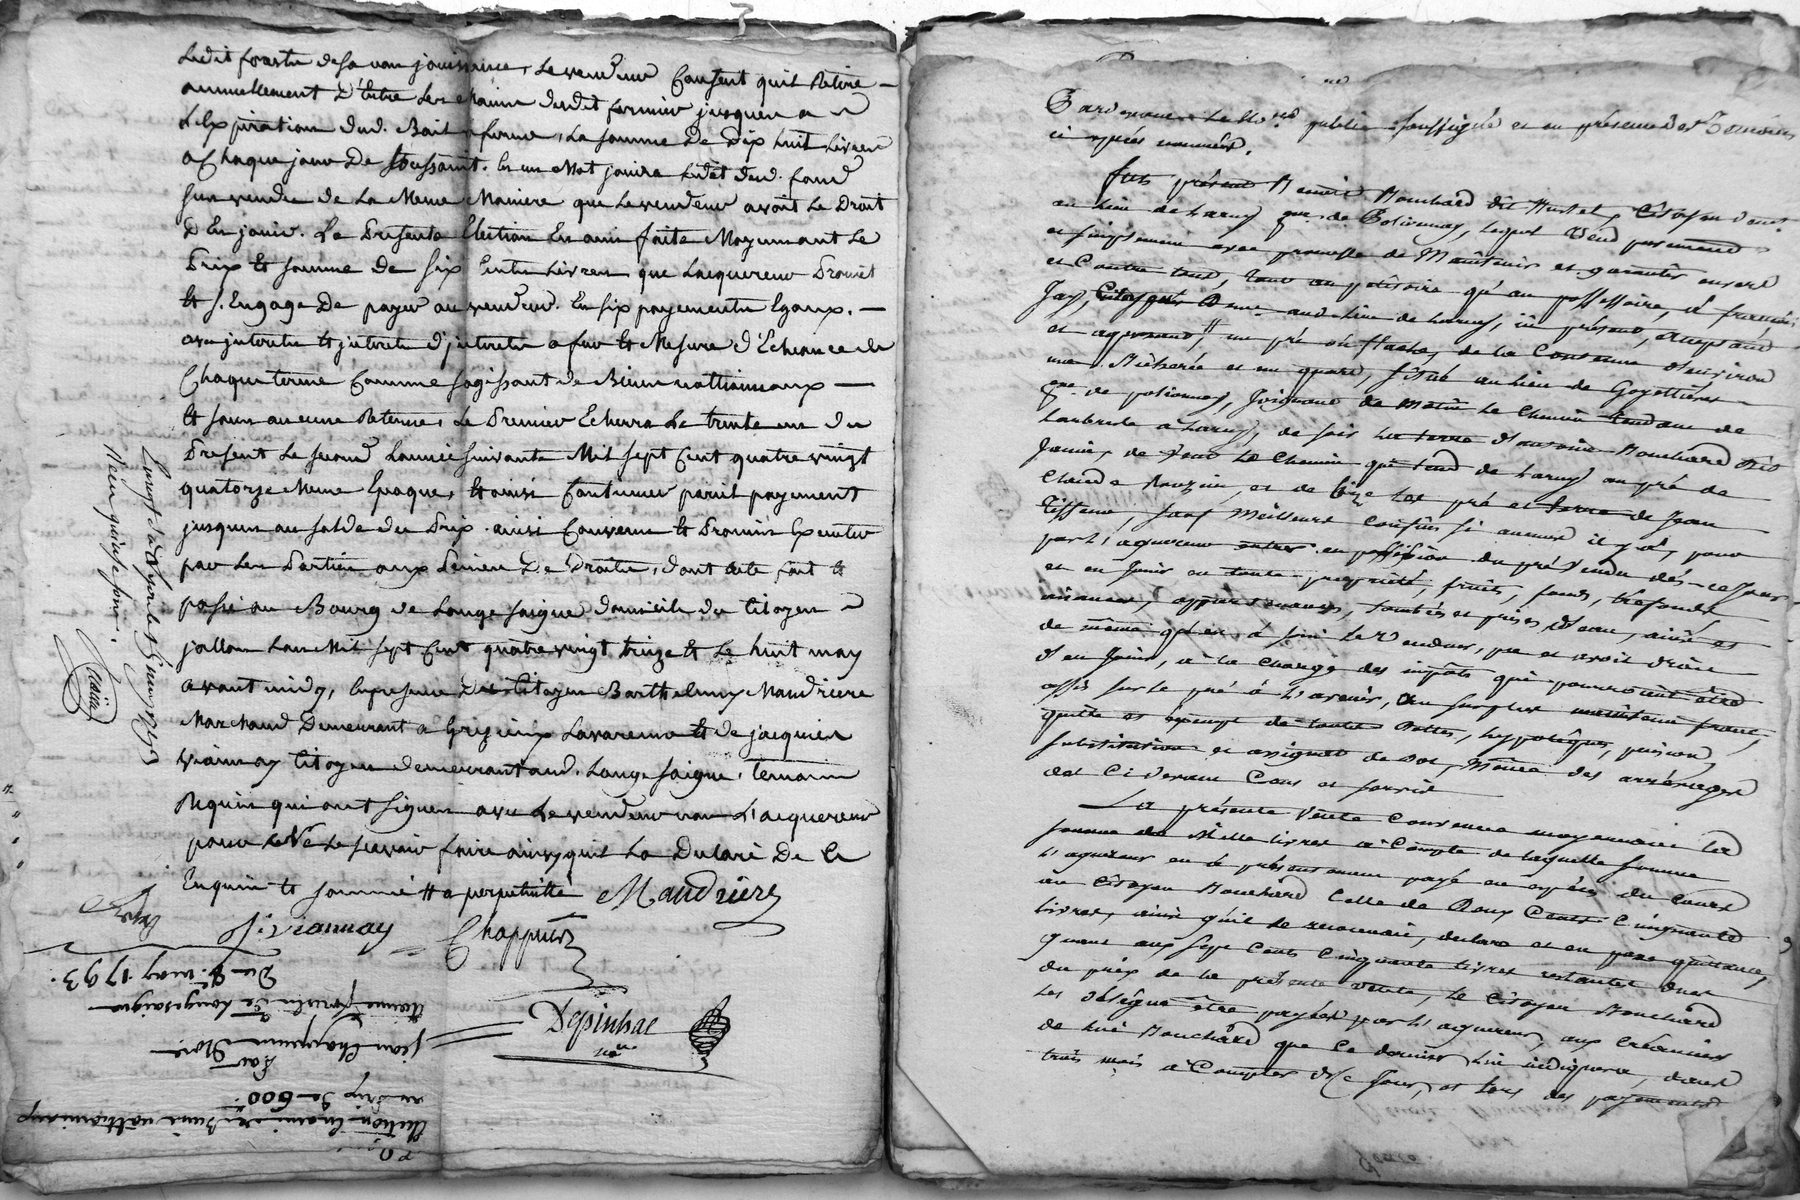 Ledit forestu desa non jouissance, Le vendeur Consent quil Retire
annuellement D'Entre Les mains dudit fermier jusques a
L'Expiration dud. Bail a ferme, La somme De Dix huit Livres
a Chaque jour De toussaint. En un Mot jouira Ledit dud. fond
sus vendu de La Meme Maniere que Le vendeur avoit Le Droit
D'En jouir. La Presente Election En ami faite Moyennant Le
Prix Et somme de Six Cents Livres que Lacquereur Promet
Et s'Engage De payer au vendeur En six payements Egaux.
avec interets Et interets d'interets a fur Et Mesure d'Echeance de
Chaque terme Comme sagissant de Biens nattionnaux
Et sans aucune Retenue, Le Premier Echerra Le trente un du
Present Le second L'année suivante Mil sept Cent quatre vingt
quatorze Meme Epoque, Et ainsi Continuer pareil payement
jusques au solde du Prix. ainsi Convenu Et Promis Executer
par Les Parties aux Peines De Droits, dont acte fait Et
passé au Bourg de Longe saigne domicile du Citoyen
jallon Lan Mil sept Cent quatre vingt treize Et Le huit may
avant midy, En presence des Citoyen Barthelemy Maudriere
Marchand Demeurant a Grezieux Lavarenne Et de jacques
Viannay Citoyen demeurant aud. Longe saigne, temoins
Requis qui ont signes avec Le vendeur non L'acquereur
pour ne Le scavoir faire ainsy quil La Declaré De Ce
Enquis Et sommé # a perpetuitté Maudriere
J. Viannay Chappuis
Depinhac
nore
Enregt. a
Reçu quinze sous.
Claira
Election En ami de Biens nattionnaux
au prix de 600
Par
jean Chappuis
Etienne forestu De Longesaigne
Du 8. may 1793.
Pardevant le Nore public soussigné et en présence des Temoins
ci après nommés.
fut présent Benoit Bouchard dit Hustel, Citoyen demt.
au lieu de harey psse. de Polionnay, lequel Vend purement
et simplement avec promesse de Maintenir et garantir envers
et Contre tous, tant au pétitoire qu'au possessoire, à francois
Jay, Citoyen demt. aud. lieu de harey, ici présent, acceptant
et acquerant, un pré ou flache, de la Contenue d'environ
une Bicherée et un quart, situé au lieu de Goyottieres
psse. de polionnay, Joignant de Matin le Chemin tendant de
Larbresle a harey, de soir la terre d'antoine Bouchard dit
Janin, de vent le Chemin qui tend de harey au pré de
Claude Rouzier, et de bize les pré et terre de Jean
Tisseur, sauf meilleurs Confins si aucuns il y a, pour
par l'acquereur entrer en possession du pré vendu dès-ce jour
et en Jouir en toute propriété, fruits, fonds, tresfonds,
aisances, appartenances, entrées et prises d'eau, ainsi et
de même qu'en a joui le Vendeur, ou et avoit droit
d'en Jouir, à la charge des impôts qui pourroient être
assis sur le pré à l'avenir, Au surplus maintenu franc,
quitte et exempt de toutes dettes, hypotèques, pension,
substitution et assignat de dot, Même des arrérages
des Ci devant Cens et servis
La présente Vente Convenue moyennant la
somme de Mille livres à Compte de laquelle somme
l'acquereur en a présentement payé en espèces du Cours
au Citoyen Bouchard Celle de Deux Cents Cinquante
livres, ainsi qu'il le reconnoit, declare et en passe quittance,
quant aux sept Cents Cinquante livres restantes dues
du prix de la présente vente, le Citoyen Bouchard
les délègue être payées par l'acquereur, aux Créanciers
de lui Bouchard que Ce dernier lui indiquera, dans
trois mois à Compter de Ce Jour, et lors des payements